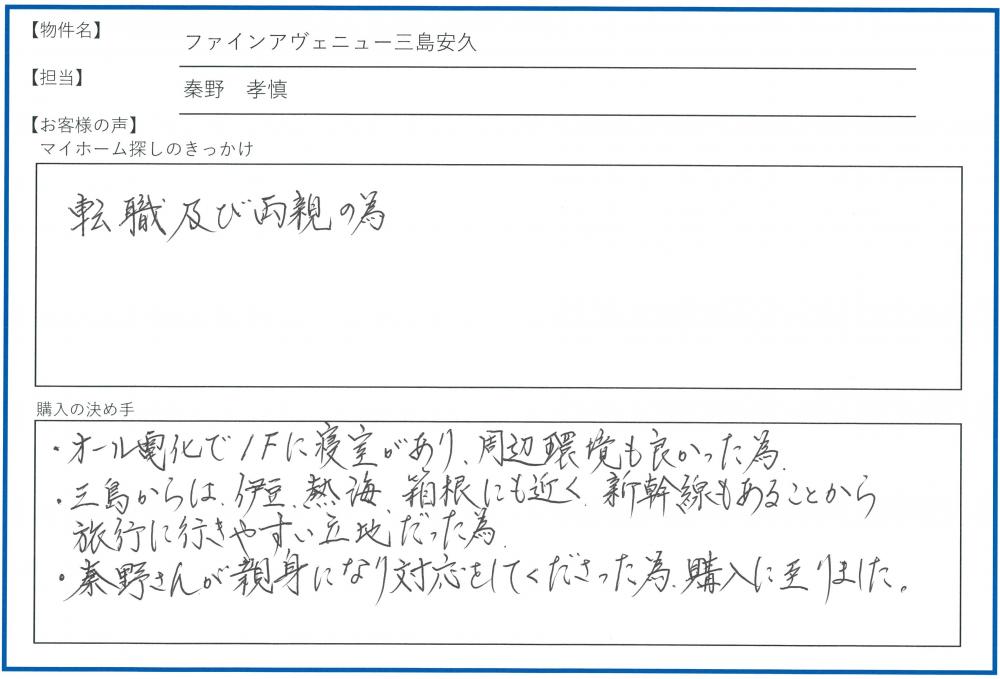 【物件名】
ファインアヴェニュー三島安久
【担当】
秦野　孝慎
【お客様の声】
マイホーム探しのきっかけ
転職及び両親の為
購入の決め手
・オール電化で1Fに寝室があり、周辺環境も良かった為、
・三島からは、伊豆、熱海、箱根にも近く、新幹線もあることから
旅行に行きやすい立地だった為、
・秦野さんが親身になり対応をしてくださった為、購入に至りました。